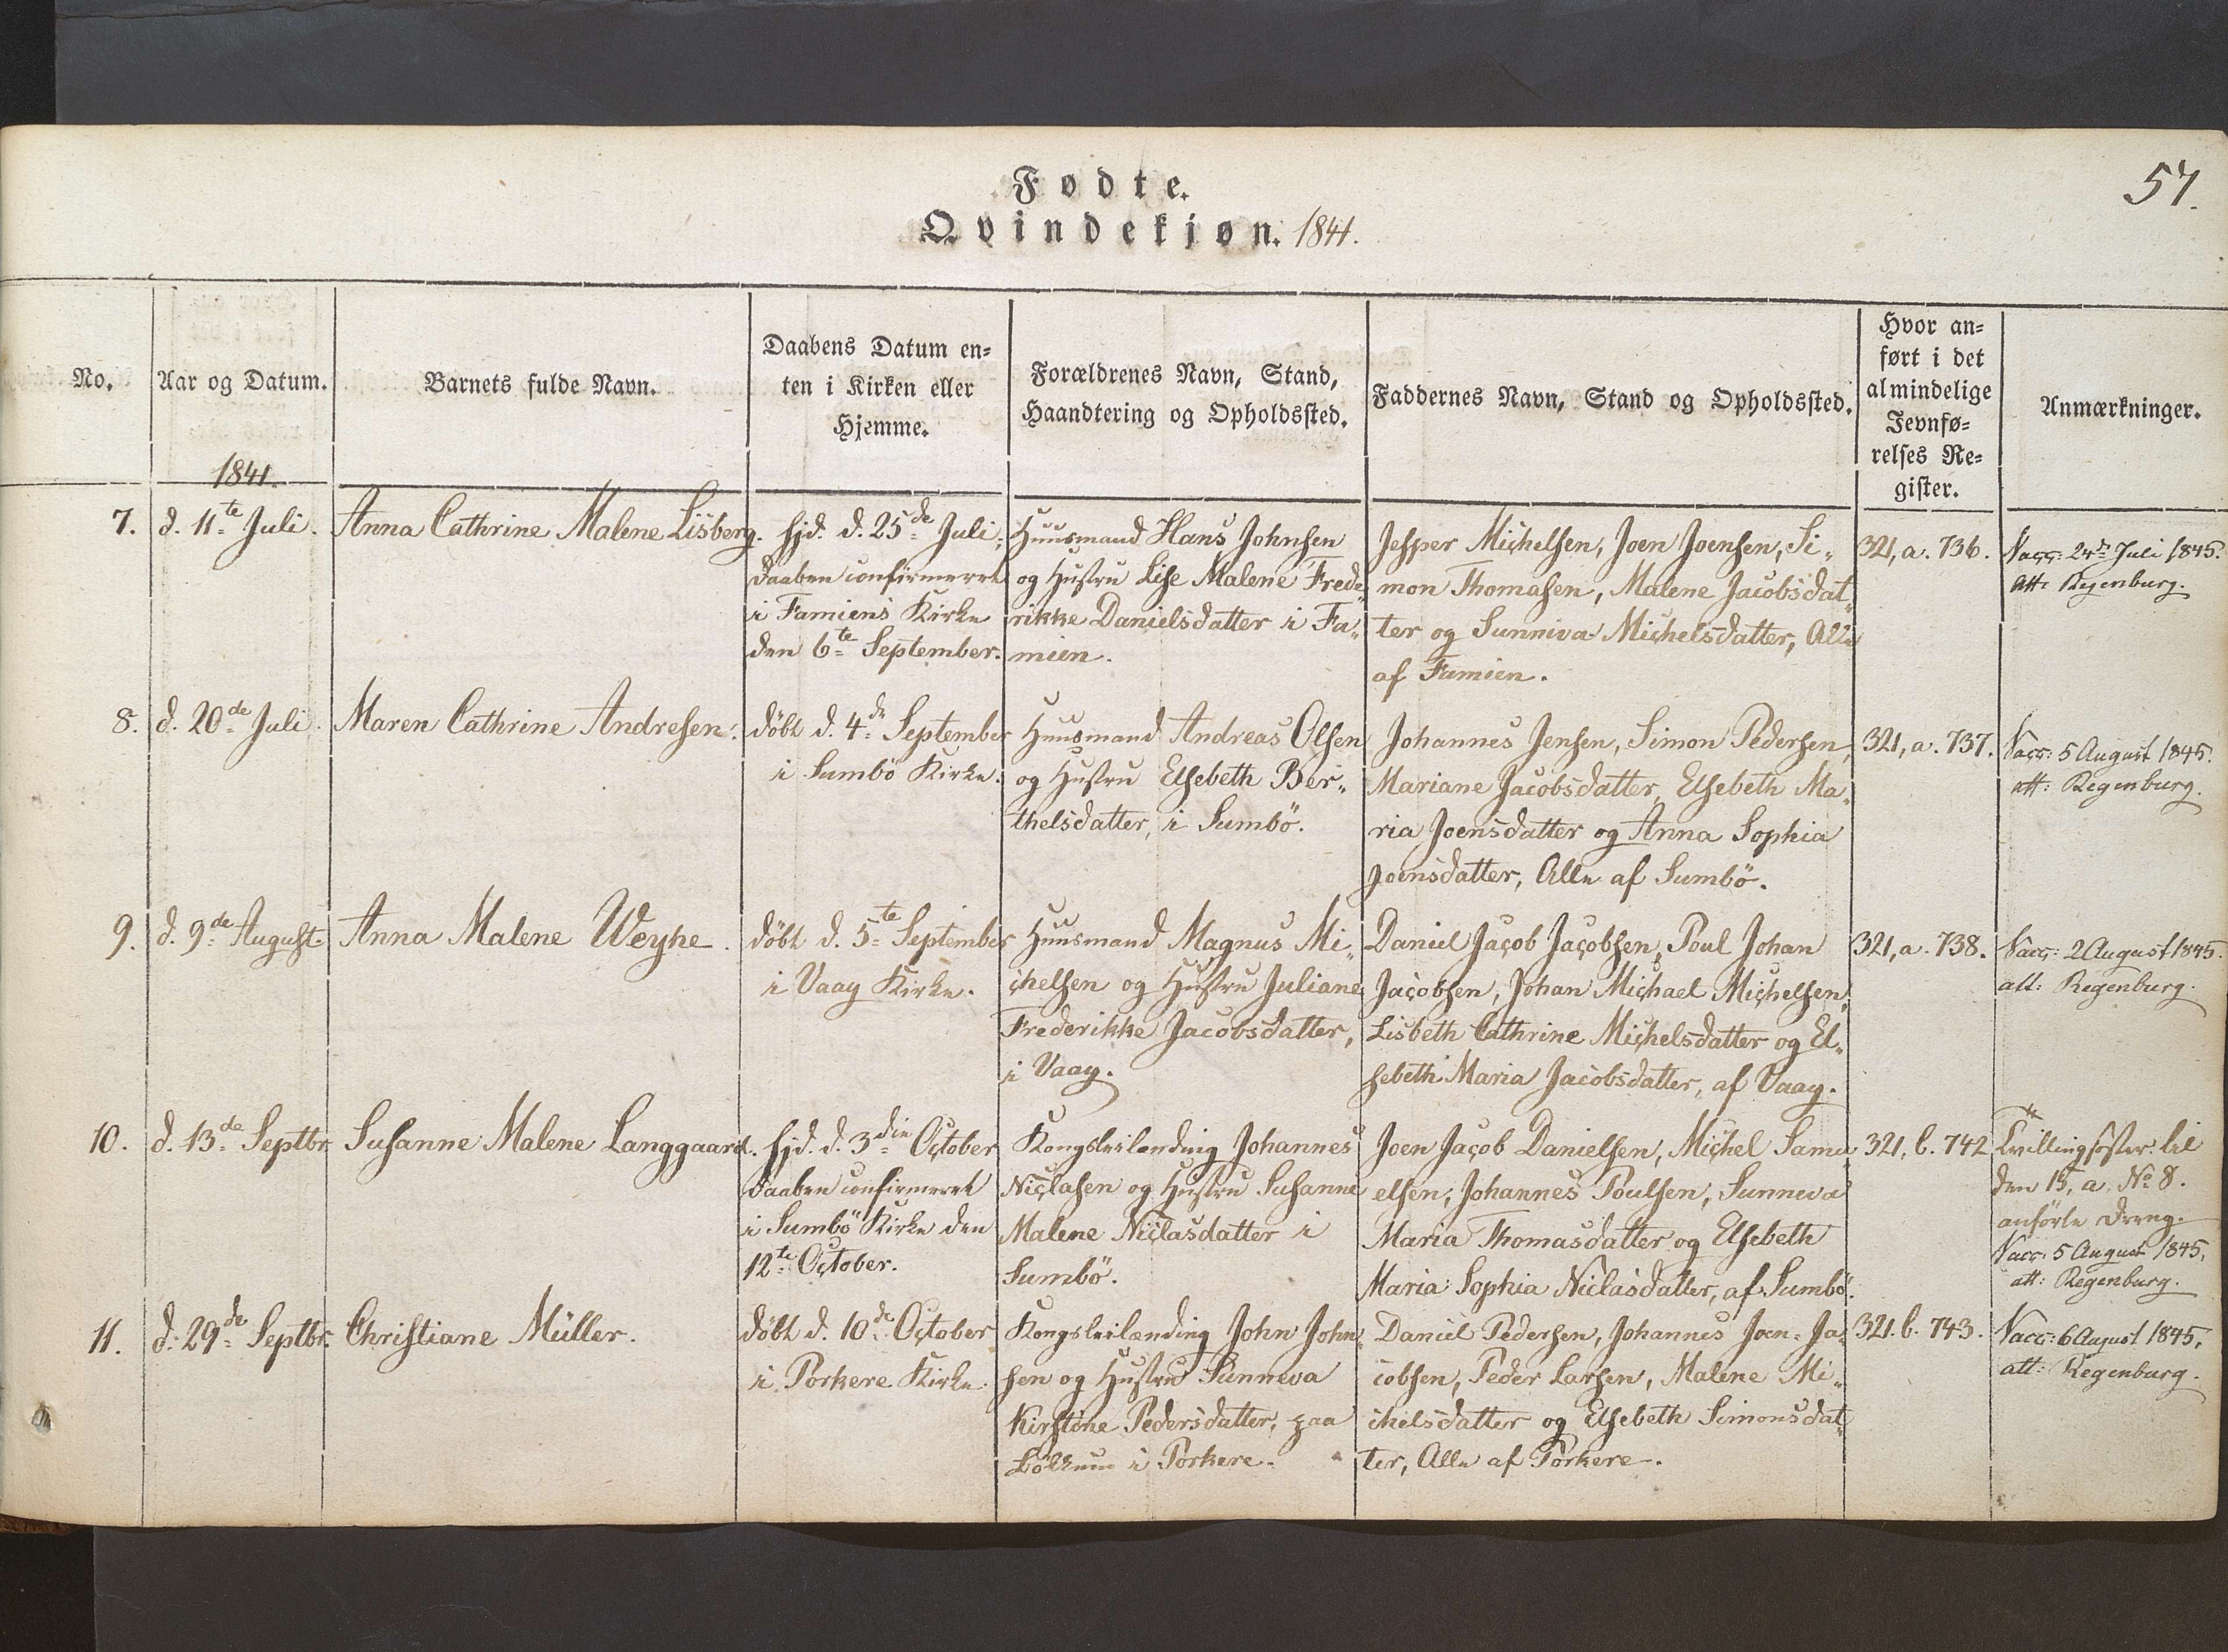 57.
Fødte.
Qvindekjøn. 1841.
No.
Aar og Datum.
Barnets fulde Navn.
Daabens Datum en=
ten i Kirken eller
Hjemme.
Forældrenes Navn, Stand,
Haandtering og Opholdssted.
Faddernes Navn, Stand og Opholdssted.
Hvor an=
ført i det
almindelige
Jevnfø=
relses Re=
gister.
Anmærkninger.
1841.
7.
d. 11te Juli.
Anna Cathrine Malene Lisberg.
hjd. d. 25de Juli;
Daaben confirmeret
i Famiens Kirke
den 6te September.
Huusmand Hans Johnsen
og Hustru Lise Malene Frede„
rikke Danielsdatter i Fa„
mien.
Jesper Michelsen, Joen Joensen, Si„
mon Thomasen, Malene Jacobsdat„
ter og Sunniva Michelsdatter, Alle
af Famien.
321, a. 736.
Vacc: 24de Juli 1845.
att: Regenburg.
8.
d. 20de Juli.
Maren Cathrine Andresen.
døbt d. 4de September
i Sumbö Kirke.
Huusmand Andreas Olsen
og Hustru Elsebeth Ber„
thelsdatter, i Sumbö.
Johannes Jensen, Simon Pedersen,
Mariane Jacobsdatter, Elsebeth Ma„
ria Joensdatter og Anna Sophia
Joensdatter, Alle af Sumbö.
321, a. 737.
Vacc: 5 August 1845.
att: Regenburg.
9.
d. 9de August.
Anna Malene Weyhe.
døbt d. 5te September
i Vaag Kirke.
Huusmand Magnus Mi„
chelsen og Hustru Juliane
Frederikke Jacobsdatter,
i Vaag.
Daniel Jacob Jacobsen, Poul Johan
Jacobsen, Johan Michael Michelsen,
Lisbeth Cathrine Michelsdatter og El„
sebeth Maria Jacobsdatter, af Vaag.
321, a. 738.
Vacc: 2 August 1845.
att: Regenburg.
10.
d. 13de Septbr.
Susanne Malene Langgaard.
hjd. d. 3die October
Daaben confirmeret
i Sumbö Kirke den
12te October.
Kongsleilænding Johannes
Niclasen og Hustru Susanne
Malene Niclasdatter i
Sumbö.
Joen Jacob Danielsen, Michel Samu„
elsen, Johannes Poulsen, Sunneva
Maria Thomasdatter og Elsebeth
Maria Sophia Niclasdatter, af Sumbö.
321, b. 742
Tvillingsøster til
den 15, a. No 8.
anförte Dreng.
Vacc: 5 August 1845.
att: Regenburg.
11.
d. 29de Septbr.
Christiane Müller.
døbt d. 10de October
i Porkere Kirke.
Kongsleilænding John John„
sen og Hustru Sunneva
Kirstine Pedersdatter, paa
i Porkere.
Daniel Pedersen, Johannes Joen Ja„
cobsen, Peder Larsen, Malene Mi„
chelsdatter og Elsebeth Simonsdat„
ter, Alle af Porkere.
321. b. 743.
Vacc: 6 August 1845.
att: Regenburg.